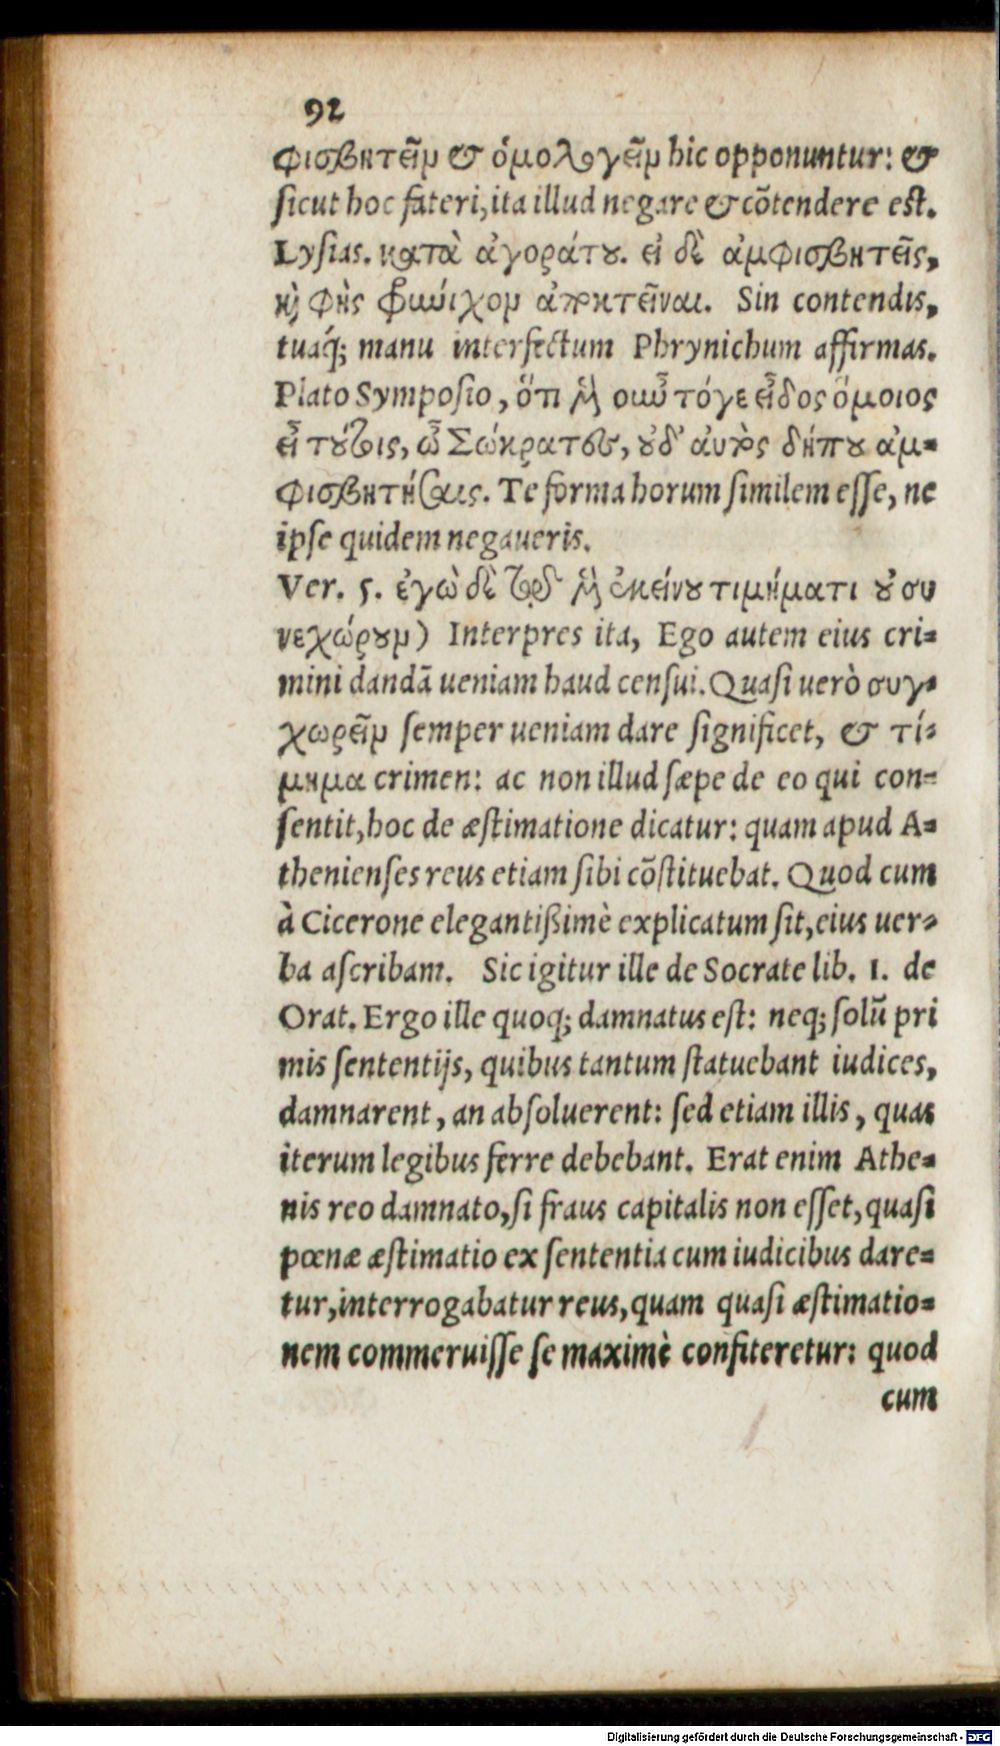 92
φισβητεῖν & ὁμολογεῖν hic opponuntur: &
sicut hoc fateri, ita illud negare & cōtendere est.
Lysias. κατὰ ἀγοράτου. εἰ δὲ ἀμφισβητεῖς,
καὶ φῂς φρύνιχον ἀποκτεῖναι. Sin contendis,
tuaq́; manu interfectum Phrynichum affirmas.
Plato Symposio, ὅτι μὲν οὖν τόγε εἶδος ὅμοιος
εἶ τούτοις, ὦ Σώκρατες, οὐδ' αὐτὸς δήπου ἀμ-
φισβητήσαις. Te forma horum similem esse, ne
ipse quidem negaueris.
Ver. 5. ἐγὼ δὲ τῷ μὲν ἐκείνου τιμήματι οὐ συ
νεχώρουν) Interpres ita, Ego autem eius cri-
mini dandā ueniam haud censui. Quasi uerò συγ-
χωρεῖν semper ueniam dare significet, & τί-
μημα crimen: ac non illud sæpe de eo qui con-
sentit, hoc de æstimatione dicatur: quam apud A-
thenienses reus etiam sibi cōstituebat. Quod cum
à Cicerone elegantißimè explicatum sit, eius uer-
ba ascribam. Sic igitur ille de Socrate lib. 1. de
Orat. Ergo ille quoq; damnatus est: neq; solū pri
mis sententijs, quibus tantum statuebant iudices,
damnarent, an absoluerent: sed etiam illis, quas
iterum legibus ferre debebant. Erat enim Athe-
nis reo damnato, si fraus capitalis non esset, quasi
pœnæ æstimatio ex sententia cum iudicibus dare-
tur, interrogabatur reus, quam quasi æstimatio-
nem commeruisse se maximè confiteretur: quod
cum
Digitalisierung gefördert durch die Deutsche Forschungsgemeinschaft - DFG